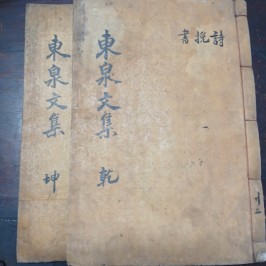 東泉文集 乾
詩
挽
書
東泉文集 坤